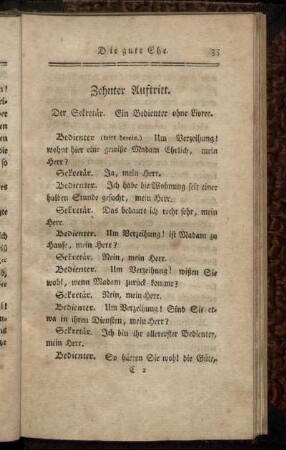 Die gute Ehe. 35
Zehnter Auftritt.
Der Sekretär. Ein Bedienter ohne Livree.
Bedienter (tritt herein.) Um Verzeihung!
wohnt hier eine gewisse Madam Ehrlich, mein
Herr?
Sekretär. Ja, mein Herr.
Bedienter. Ich habe die Wohnung seit einer
halben Stunde gesucht, mein Herr.
Sekretär. Das bedaure ich recht sehr, mein
Herr.
Bedienter. Um Verzeihung! ist Madam zu
Hause, mein Herr?
Sekretär. Nein, mein Herr.
Bedienter. Um Verzeihung! wißen Sie
wohl, wenn Madam zurück komme?
Sekretär. Nein, mein Herr.
Bedienter. Um Verzeihung! Sind Sie et-
wa in ihren Diensten, mein Herr?
Sekretär. Ich bin ihr allererster Bedienter,
mein Herr.
Bedienter. So hätten Sie wohl die Güte,
C 2